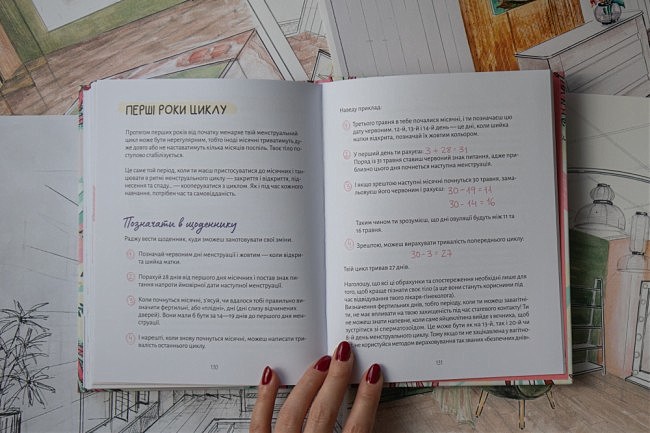 ПЕРШІ РОКИ ЦИКЛУ
Протягом перших років від початку менархе твій менструальний
цикл може бути нерегулярним, тобто іноді місячні триватимуть ду-
же довго або не наставатимуть кілька місяців поспіль. Твоє тіло по-
ступово стабілізується.
Це саме той період, коли ти маєш пристосуватися до місячних і тан-
цювати в ритмі менструального циклу — закриття і відкриття, під-
несення та спаду... — «кооперуватися» з циклом. Як і під час кожного
навчання, потрібен час та самовідданість.
Позначати в щоденнику
Раджу вести щоденник, куди зможеш занотовувати свої зміни.
1 Позначай червоним дні менструації і жовтим — коли відкри-
та шийка матки.
2 Порахуй 28 днів від першого дня місячних і постав знак пи-
тання напроти ймовірної дати наступної менструації.
3 Коли почнуться місячні, з'ясуй, чи вдалося тобі правильно ви-
значити фертильні, або «плідні», дні (дні слизу відчинених
дверей). Вони мали б бути за 14—19 днів до першого дня мен-
струації.
4 І нарешті, коли знову почнуться місячні, можеш написати три-
валість останнього циклу.
130
Наведу приклад:
1 Третього травня в тебе почалися місячні, і ти позначаєш цю
дату червоним. 12-й, 13-й і 14-й день — це дні, коли шийка
матки відкрита, позначаєш їх жовтим кольором.
2 У перший день ти рахуєш: 3 + 28 = 31
Поряд із 31 травня ставиш червоний знак питання, адже при-
близно цього дня почнеться наступна менструація.
3 І якщо зрештою наступні місячні почнуться 30 травня, зама-
льовуєш його червоним і рахуєш: 30 - 19 = 11
30 - 14 = 16
Таким чином ти зрозумієш, що дні овуляції будуть між 11 та
16 травня.
4 Зрештою, можеш вирахувати тривалість попереднього циклу:
30 - 3 = 27
Твій цикл тривав 27 днів.
Наголошу, що всі ці обрахунки та спостереження необхідні лише для
того, щоб краще пізнати своє тіло (а ще вони стануть корисними під
час відвідування твого лікаря-гінеколога).
Визначення фертильних днів, тобто періоду, коли ти можеш завагітні-
ти, не має впливати на твою захищеність під час статевого контакту! Ти
не можеш знати напевне, коли саме яйцеклітина вийде з яєчника, щоб
зустрітися зі сперматозоїдом. Це може бути як на 13-й, так і 20-й чи
8-й день менструального циклу. Тому якщо ти не зацікавлена у вагітно-
не користуйся методом вирахування так званих «безпечних днів».
131